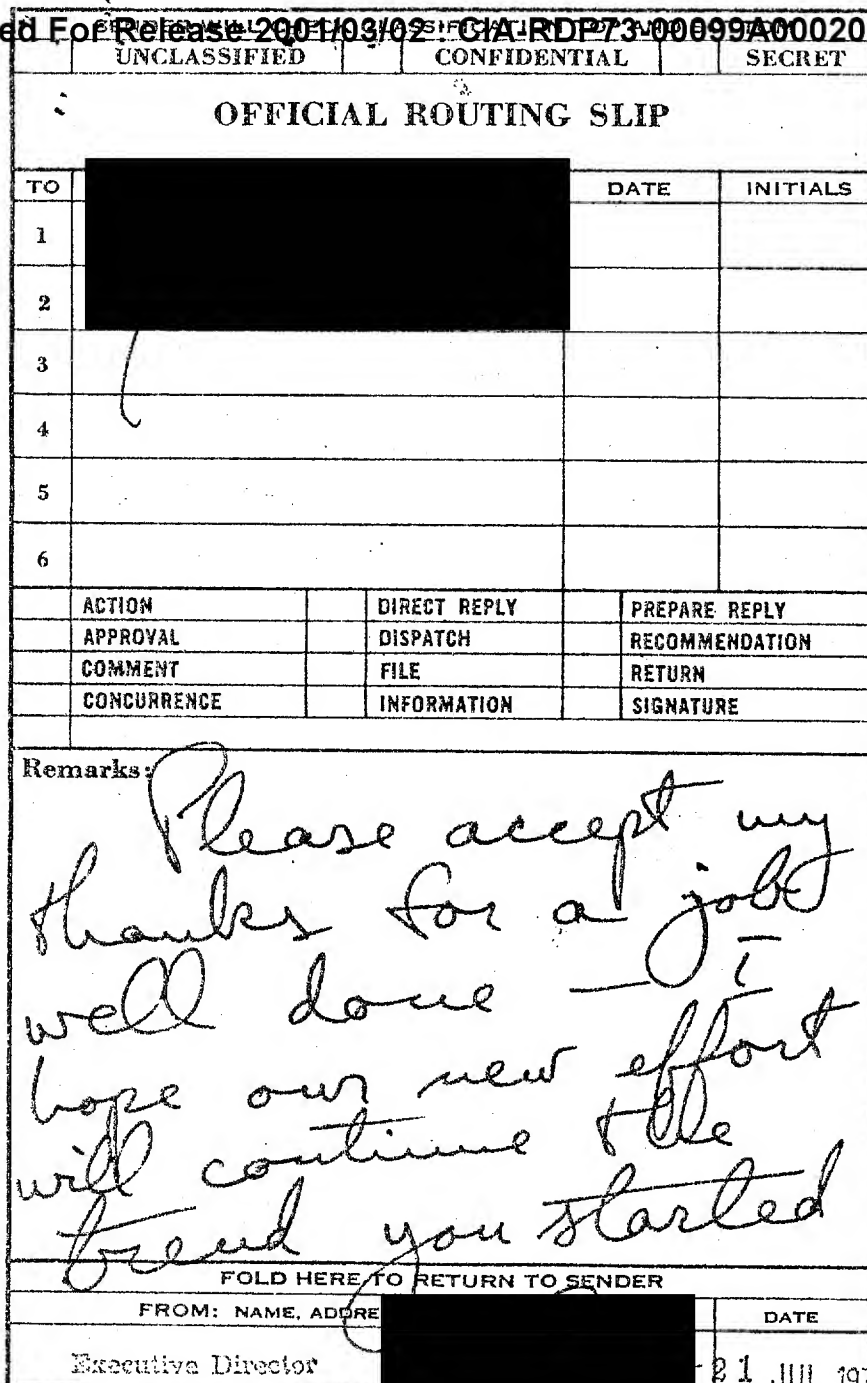 ed For Release 2001/03/02 : CIA-RDP73-00099A00020
UNCLASSIFIED CONFIDENTIAL SECRET
OFFICIAL ROUTING SLIP
TO DATE INITIALS
1
2
3
4
5
6
ACTION DIRECT REPLY PREPARE REPLY
APPROVAL DISPATCH RECOMMENDATION
COMMENT FILE RETURN
CONCURRENCE INFORMATION SIGNATURE
Remarks:
Please accept my
thanks for a job
well done — I
hope our new effort
will continue the
trend you started
FOLD HERE TO RETURN TO SENDER
FROM: NAME, ADDRE DATE
Executive Director 21 JUL 197